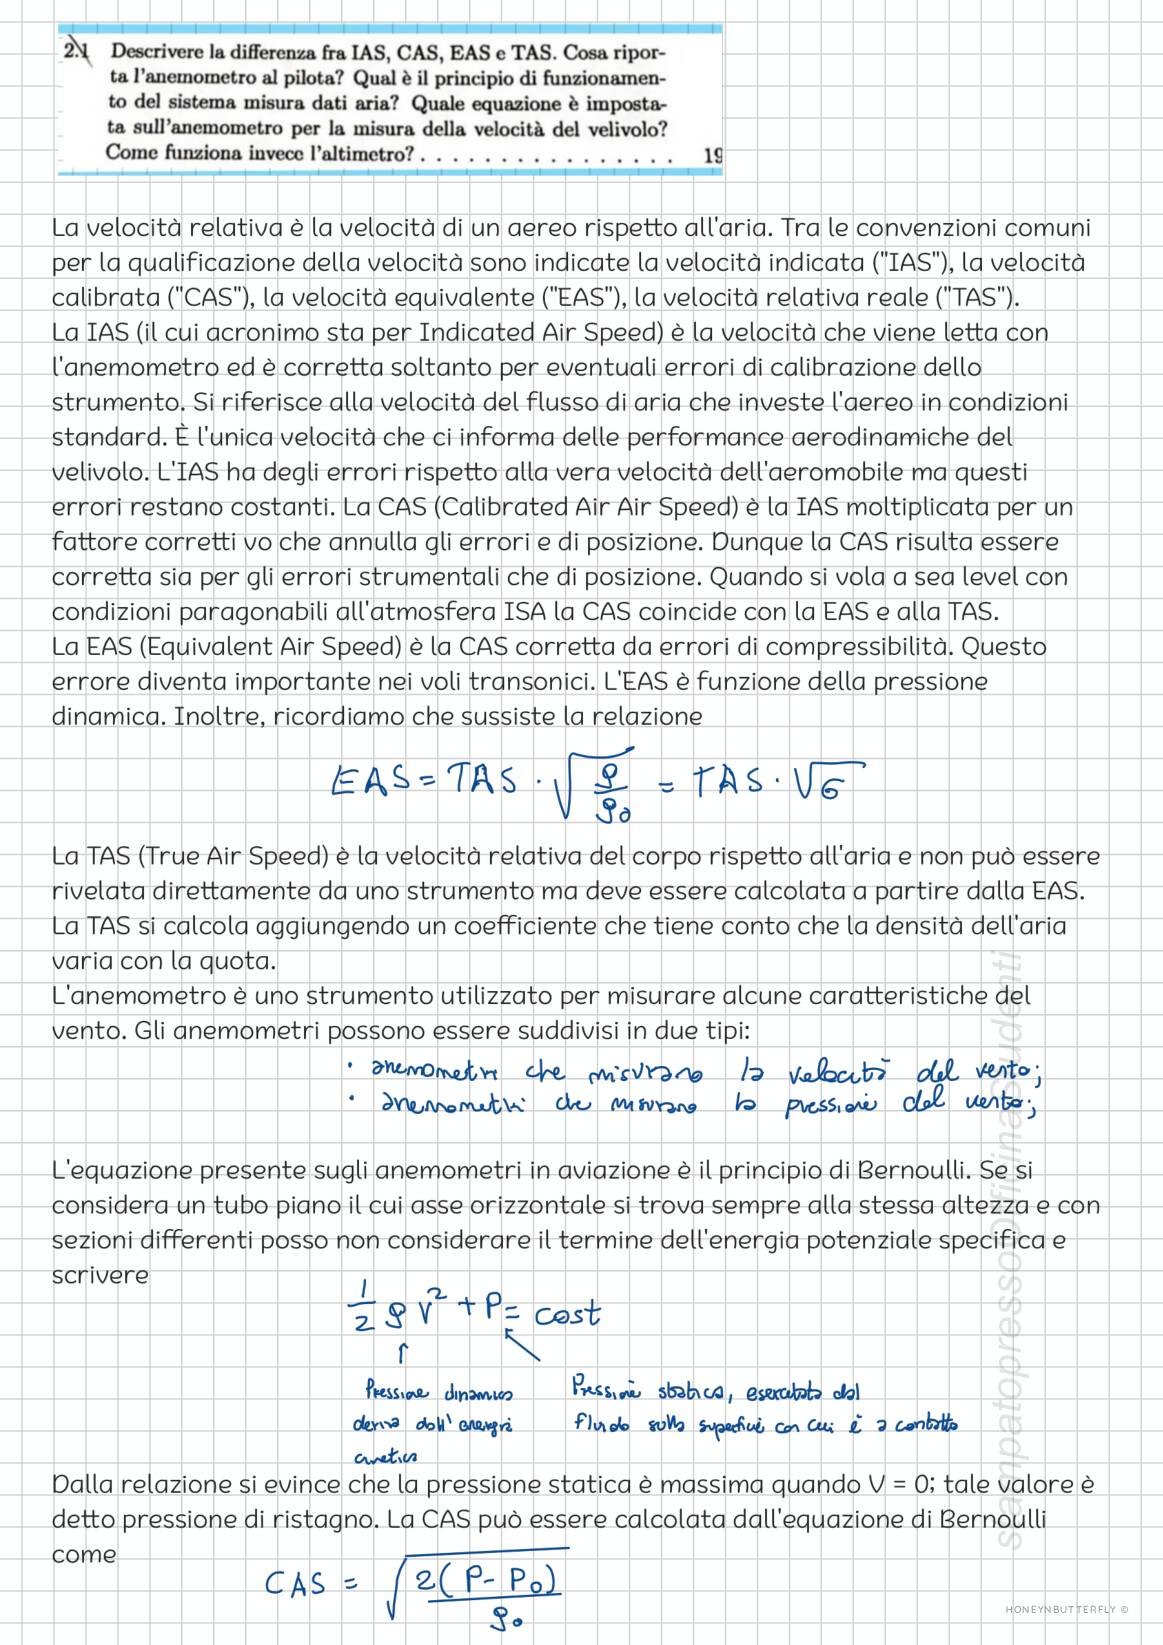 2.1 Descrivere la differenza fra IAS, CAS, EAS e TAS. Cosa ripor-
ta l'anemometro al pilota? Qual è il principio di funzionamen-
to del sistema misura dati aria? Quale equazione è imposta-
ta sull'anemometro per la misura della velocità del velivolo?
Come funziona invece l'altimetro? . . . . . . . . . . . . . . . . 19
La velocità relativa è la velocità di un aereo rispetto all'aria. Tra le convenzioni comuni
per la qualificazione della velocità sono indicate la velocità indicata ("IAS"), la velocità
calibrata ("CAS"), la velocità equivalente ("EAS"), la velocità relativa reale ("TAS").
La IAS (il cui acronimo sta per Indicated Air Speed) è la velocità che viene letta con
l'anemometro ed è corretta soltanto per eventuali errori di calibrazione dello
strumento. Si riferisce alla velocità del flusso di aria che investe l'aereo in condizioni
standard. È l'unica velocità che ci informa delle performance aerodinamiche del
velivolo. L'IAS ha degli errori rispetto alla vera velocità dell'aeromobile ma questi
errori restano costanti. La CAS (Calibrated Air Air Speed) è la IAS moltiplicata per un
fattore corretti vo che annulla gli errori e di posizione. Dunque la CAS risulta essere
corretta sia per gli errori strumentali che di posizione. Quando si vola a sea level con
condizioni paragonabili all'atmosfera ISA la CAS coincide con la EAS e alla TAS.
La EAS (Equivalent Air Speed) è la CAS corretta da errori di compressibilità. Questo
errore diventa importante nei voli transonici. L'EAS è funzione della pressione
dinamica. Inoltre, ricordiamo che sussiste la relazione
EAS = TAS · √(ρ/ρ0) = TAS · √σ
La TAS (True Air Speed) è la velocità relativa del corpo rispetto all'aria e non può essere
rivelata direttamente da uno strumento ma deve essere calcolata a partire dalla EAS.
La TAS si calcola aggiungendo un coefficiente che tiene conto che la densità dell'aria
varia con la quota.
L'anemometro è uno strumento utilizzato per misurare alcune caratteristiche del
vento. Gli anemometri possono essere suddivisi in due tipi:
· anemometri che misurano la velocità del vento;
· anemometri che misurano la pressione del vento;
L'equazione presente sugli anemometri in aviazione è il principio di Bernoulli. Se si
considera un tubo piano il cui asse orizzontale si trova sempre alla stessa altezza e con
sezioni differenti posso non considerare il termine dell'energia potenziale specifica e
scrivere
1/2 ρ V² + P = cost
Pressione dinamica
deriva dall'energia
cinetica
Pressione statica, esercitata dal
fluido sulla superficie con cui è a contatto
Dalla relazione si evince che la pressione statica è massima quando V = 0; tale valore è
detto pressione di ristagno. La CAS può essere calcolata dall'equazione di Bernoulli
come
CAS = √(2(P - P0)/ρ0)
HONEYNBUTTERFLY ©